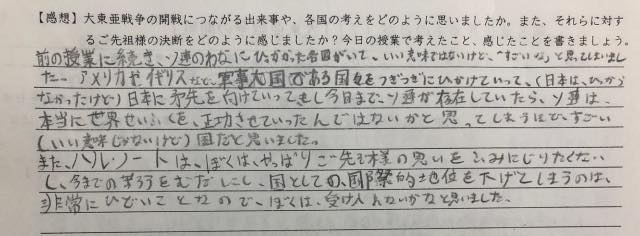 【感想】大東亜戦争の開戦につながる出来事や、各国の考えをどのように思いましたか。また、それらに対す
るご先祖様の決断をどのように感じましたか？今日の授業で考えたこと、感じたことを書きましょう。
前の授業に続き、ソ連のわなにひっかかった各国がいて、いい意味ではないけど、「すごいな」と思ってしまいまし
た。アメリカやイギリスなど、軍事大国である国々をつぎつぎにひっかけていって、(日本は、ひっから
なかったけど)日本に矛先を向けていってもし今日まで、ソ連が存在していたら、ソ連は、
本当に世界せいふくを、正功させていったんではないかと思ってしまうほど、すごい
(いい意味じゃないけど)国だと思いました。
また、ハル・ノートは、ぼくは、やっぱりご先祖様の思いをふみにじりたくない
し、今までの苦ろうをむだにし、国としての、国際的地位を下げてしまうのは、
非常にひどいことなので、ぼくは、受け入れないかなと思いました。